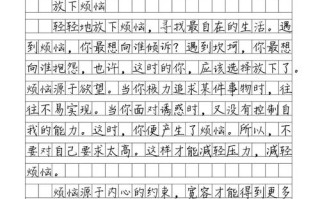 放下烦恼
轻轻地放下烦恼，寻找最自在的生活。遇
到烦恼，你最想向谁倾诉？遇到坎坷，你最想
向谁抱怨，也许，这时的你，应该选择放下了。
烦恼源于欲望。当你极力追求某件事物时，往
往不易实现。当你面对诱惑时，又没有控制自
我的能力。这时，你便产生了烦恼。所以，不
要对自己要求太高。这样才能减轻压力，减轻
烦恼。
烦恼源于内心的约束，宽容才能得到更多